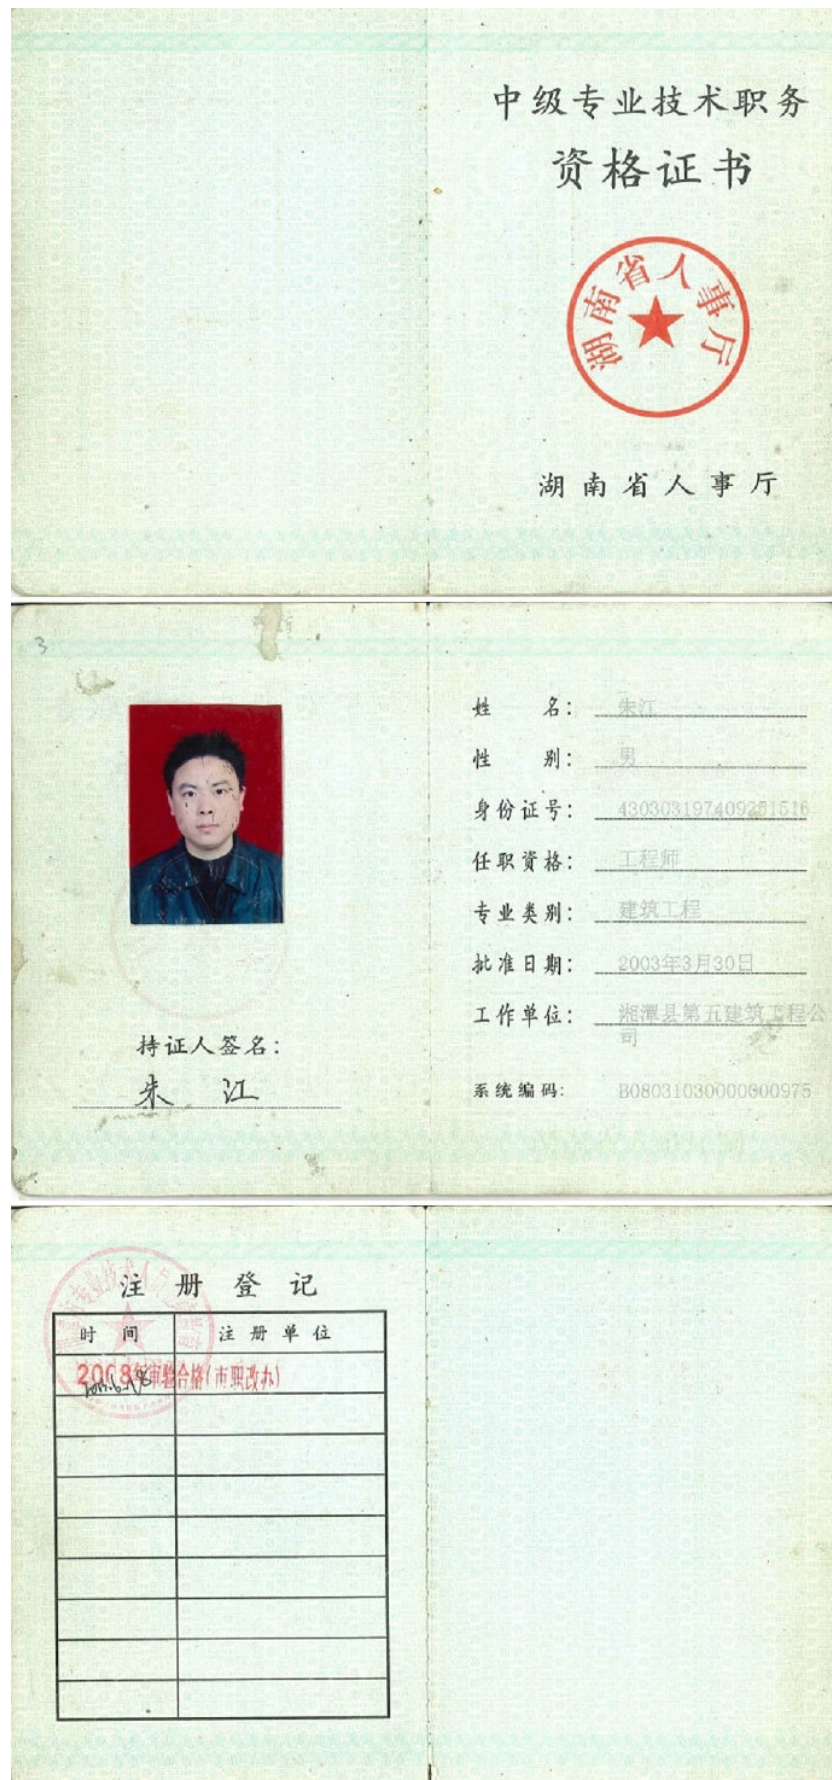 中级专业技术职务
资格证书
湖南省人事厅
湖南省人事厅
3
姓 名: 朱江
性 别: 男
身份证号: 430303197409251516
任职资格: 工程师
专业类别: 建筑工程
批准日期: 2003年3月30日
工作单位: 湘潭县第五建筑工程公
司
系统编码: B08031030000000975
持证人签名:
朱 江
注册登记
时 间 注册单位
2008年审验合格(市职改办)